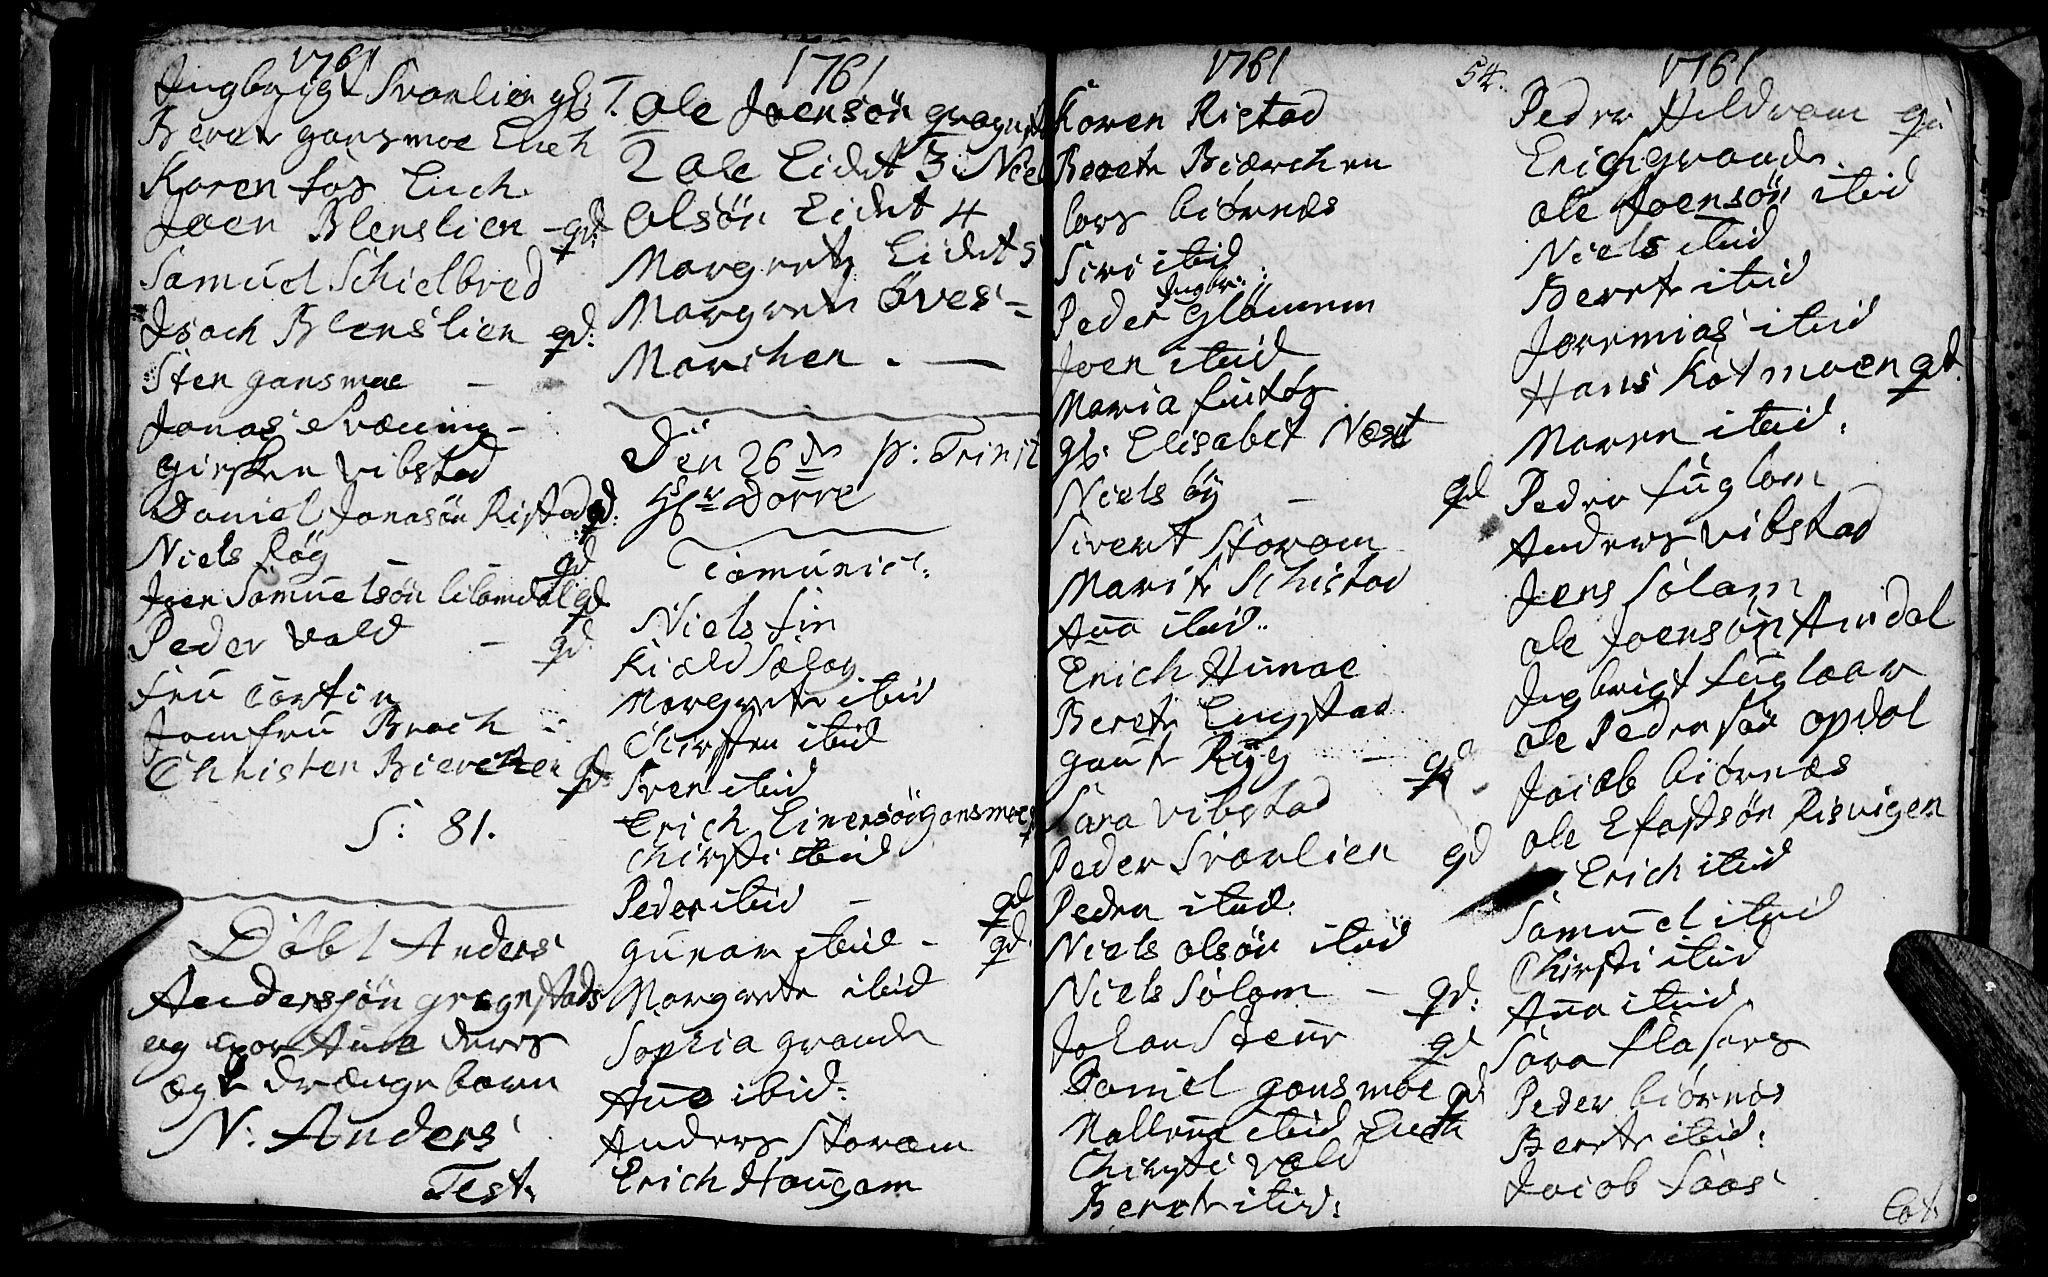 1761
Ingbrigt Svarlien gß:
Beret gansmoe Euch
Karen fos Euch.
Joen Blenslien - gd:
Samuel Schielbred
Isach Blenslien gd:
Sten gansmoe -
Jonas Sræning -
girsten vibstad
Daniel Jonasön Ristad gd:
Niels Røg - gd
Joen Samuelsön gd
Peder vald - gd.
fru Cortin
Jomfru Brach
Christen Bierchen gd
S: 81.
Döbt Anders
Andersön gragnstads
og ders
ægte drænge barn
N: Anders
Test.
1761
1. Ole Joensön
2 Ole Eidet 3 Niels
Olsön Eidet 4
Margrete Eidet 5
Margrete Öves-
Marchen. -
Den 26de p: Trinit
Dorre
Comunic:
Niels fin
Kield
Margrete ibid
Chirsten ibid
Sven ibid
Erich Einersön gansmoe
Chirsti ibid
Peder ibid - gd
gunar ibid - gd.
Margrete ibid
Sophia grande
Ana ibid:
Anders Storæm
Erich Haugam
1761
54.
Karen Ristad
Berete Biørchen
lars biörnes
Siri ibid
Ingbr:
Peder Glömmen
Joen ibid
Maria
gß. Elisabet Næset
Niels by - gd
Sivert Storam
Marit Schistad
Ana ibid..
Erich Humoe
Berete Engstad
gaute Rÿg - gd
Sara vibstad
Peder Svarlien gd
Peder ibid
Niels olsön ibid
Niels Solam - gd:
Johan gd
Daniel gansmoe gd
ibid Euch
Chirsti vald
Berete ibid:
1761
Peder Hildram gd
Erich grande.
ole Joensön ibid
Niels ibid
Berete ibid
Jeremias ibid
Hans Kotmoen gd.
Maren ibid:
Peder fuglem
Anders vibstad
Jens Solam
ole Joensön Amdal
Ingbrigt
ole Pedersön opdal
Jacob biörnes
ole Efastsön Risvigen
Erich ibid
Samuel ibid
Chirsti ibid
Ana ibid
Sara
Peder biörnes
Berete ibid:
Jacob